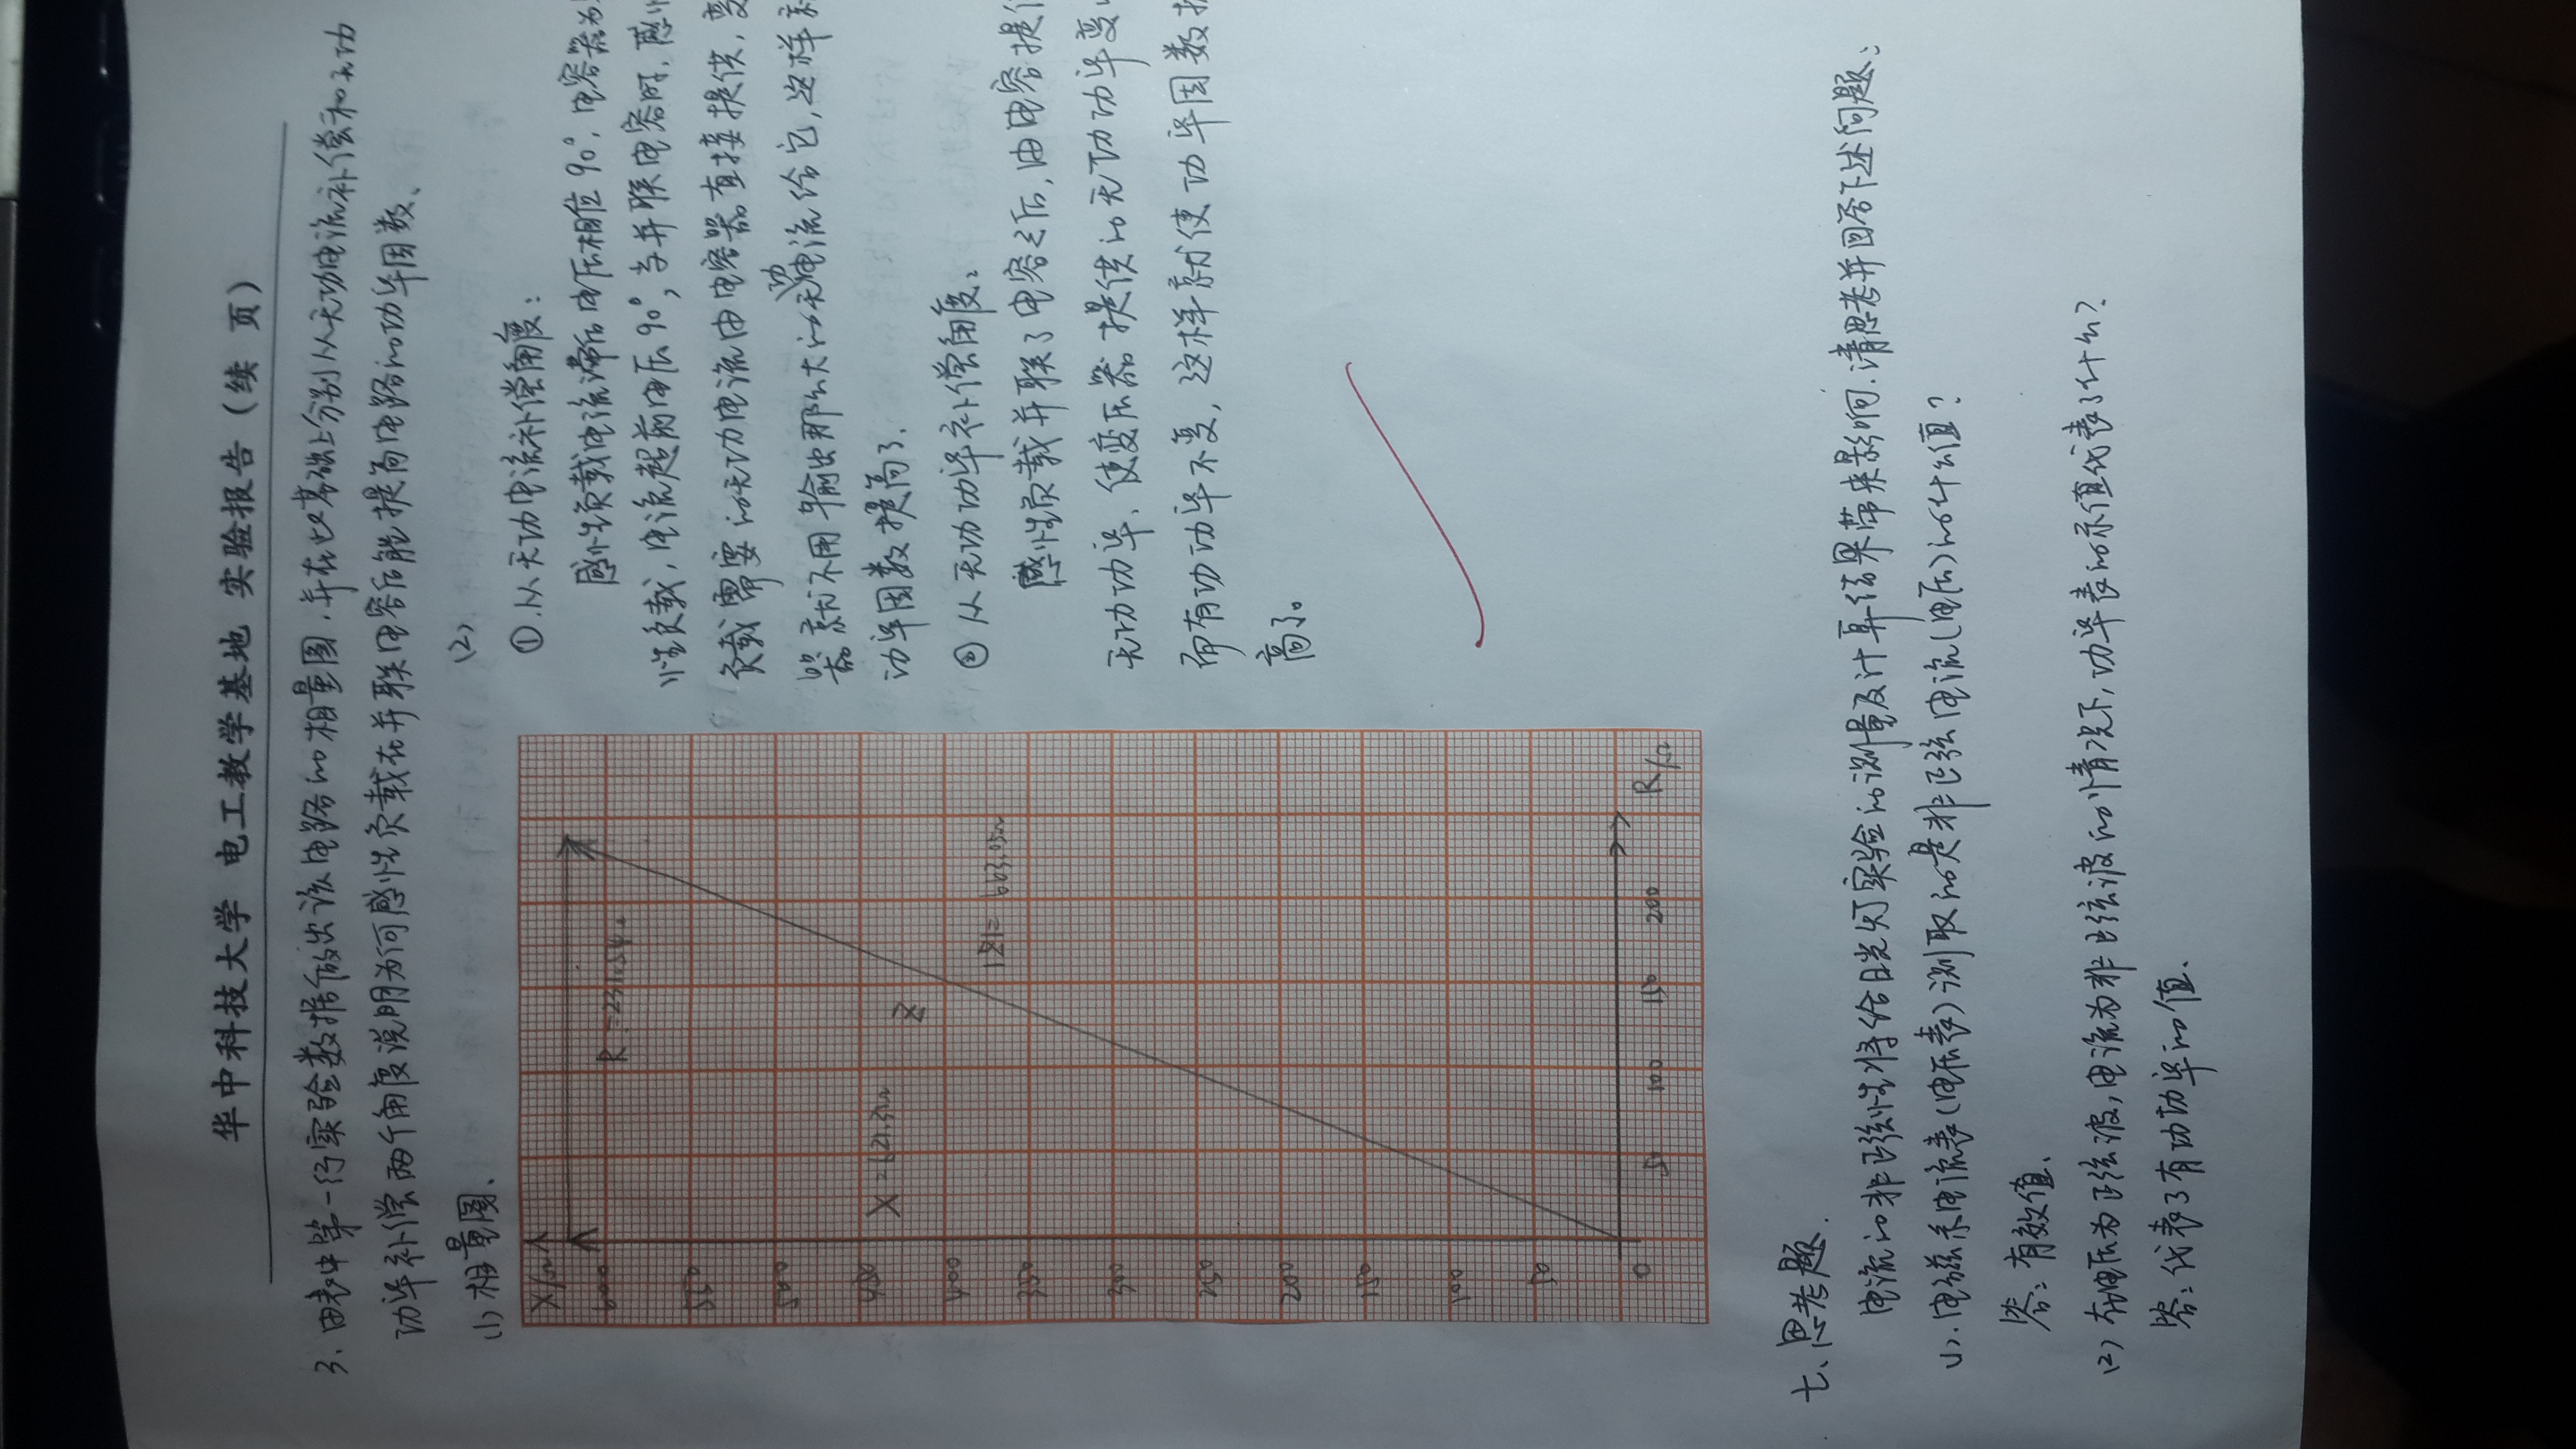 华中科技大学 电工教学基地 实验报告(续 页)
3. 由表中第一行实验数据做出该电路的相量图,并在此基础上分别从无功电流补偿和无功
功率补偿两个角度说明为何感性负载在并联电容后能提高电路的功率因数.
(1) 相量图.
X/Ω
600
550
500
450
400
350
300
250
200
150
100
50
0
50 100 150 200 R/Ω
R = 231.54Ω
X = 621.31Ω
Z
|Z| = 663.05Ω
(2)
① 从无功电流补偿角度:
感性负载电流滞后电压相位90°,电容器为
性负载,电流超前电压90°,当并联电容时,感性
负载需要的无功电流由电容器直接提供,变
器就不用输出那么大的无功电流给它,这样就
功率因数提高了.
② 从无功功率补偿角度:
感性负载并联了电容之后,由电容提供
无功功率,使变压器提供的无功功率变
而有功功率不变,这样就使功率因数提
高了。
七、思考题.
电流的非正弦性将给日光灯实验的测量及计算结果带来影响.请思考并回答下述问题:
(1). 电磁系电流表(电压表)测取的是非正弦电流(电压)的什么值?
答:有效值.
(2) 在电压为正弦波,电流为非正弦波的情况下,功率表的示值代表了什么?
答:代表了有功功率的值.